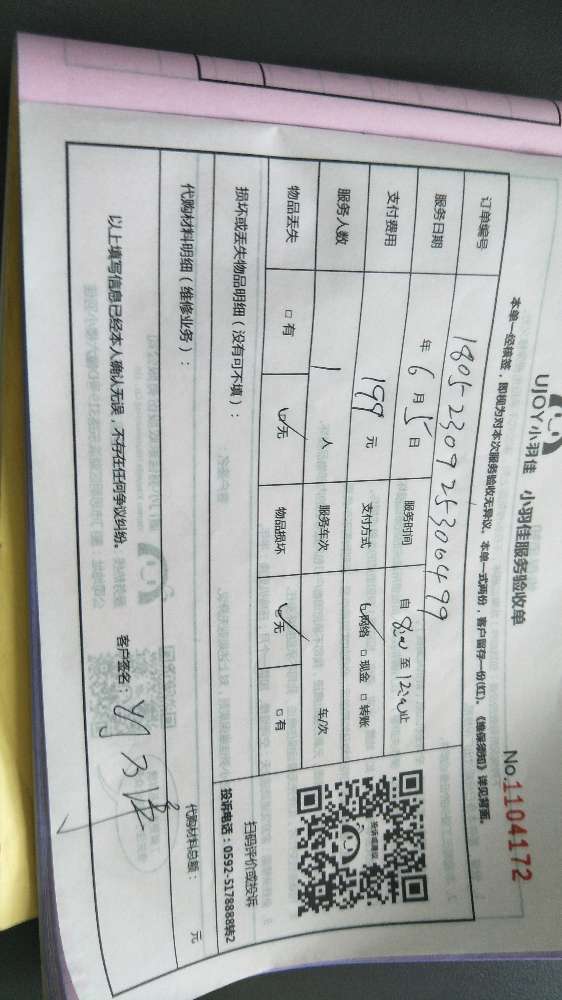 UJOY小羽佳 小羽佳服务验收单
No.1104172
本单一经核签，即视为对本次服务验收无异议。本单一式两份，客户留存一份(红)。《维保须知》详见背面。
订单编号 1805230925300499
服务日期 年 6 月 5 日 服务时间 自 8:00 至 12:00 止
支付费用 199 元 支付方式 ☑网络 □现金 □转账
服务人数 1 人 服务车次 车/次
物品丢失 □有 ☑无 物品损坏 ☑无 □有
损坏或丢失物品明细（没有可不填）：
扫码评价或投诉
投诉电话：0592-5178888转2
代购材料明细（维修业务）：
代购材料总额： 元
以上填写信息已经本人确认无误，不存在任何争议纠纷。
客户签名：